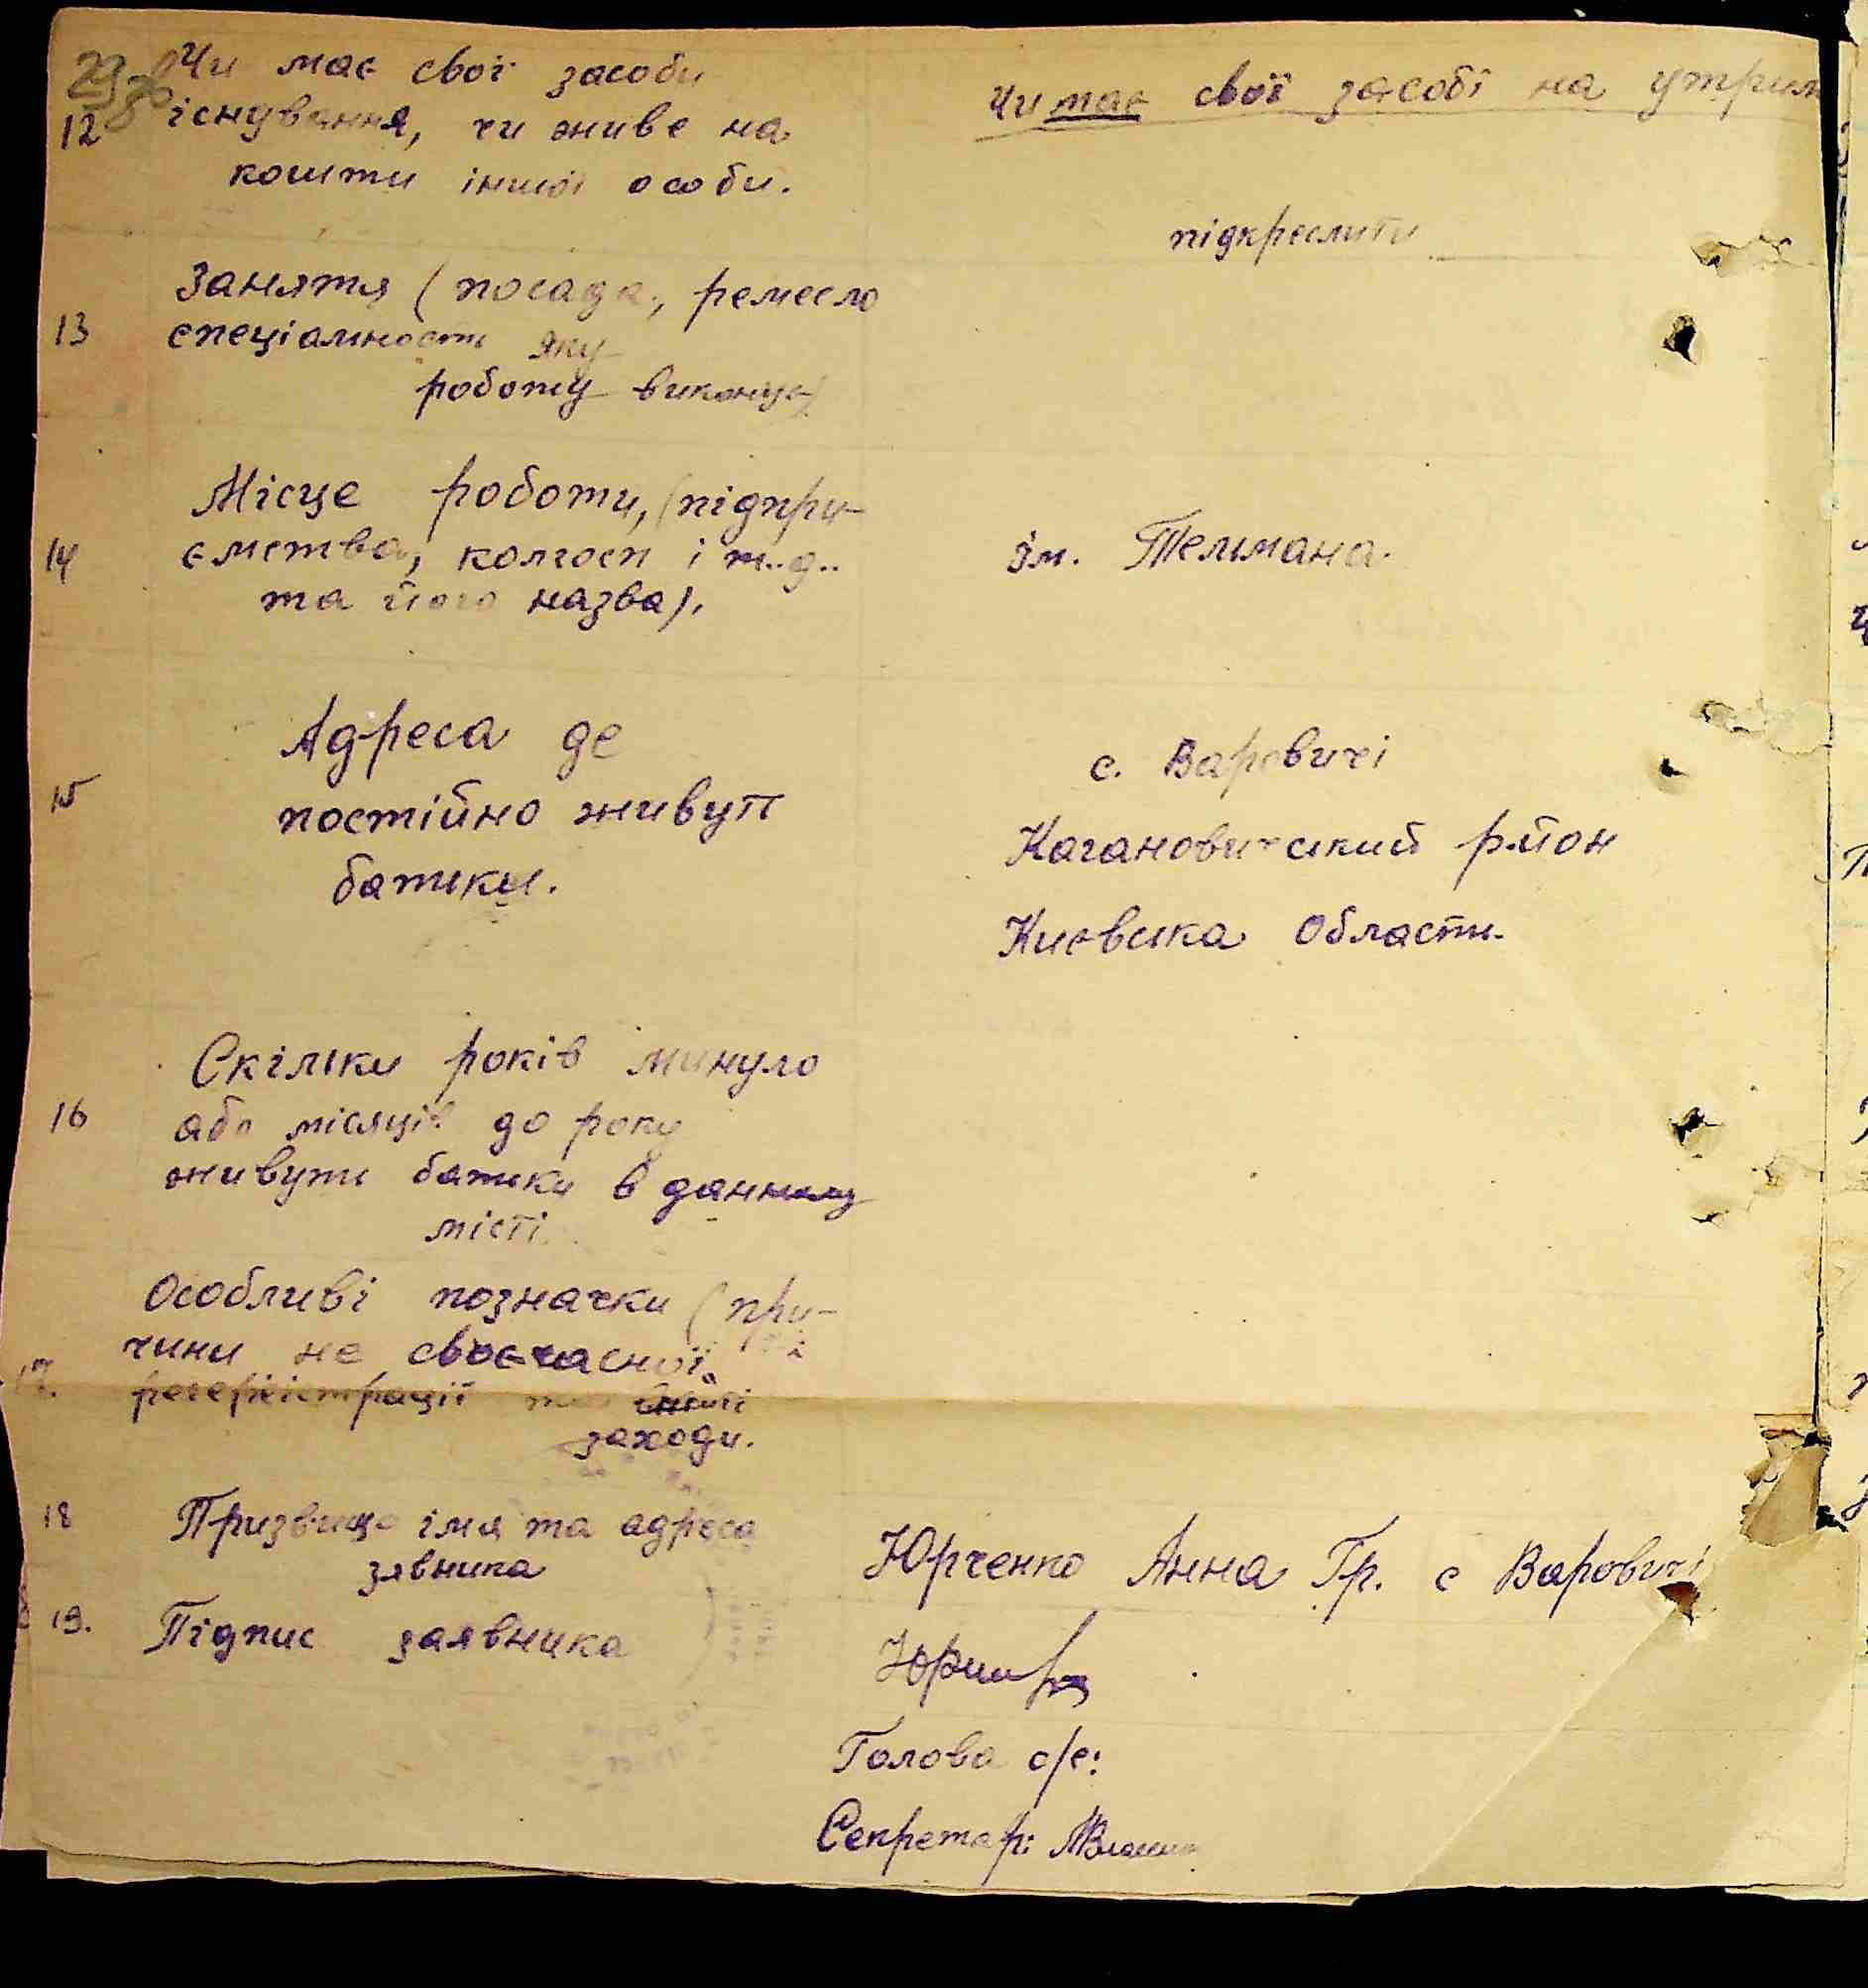 29зв Чи має свої засоби
12 існування, чи живе на
кошти іншої особи.
Чи має свої засобі на утрим
підкреслити
Заняття (посада, ремесло
13 спеціальность яку
роботу виконує)
Місце роботи, (підпри-
14 ємства, колгосп і т.д..
та його назва).
ім. Тельмана.
Адреса де
15 постійно живут
батьки.
с. Варовичі
Кагановичський р-йон
Києвська Область.
Скільки років минуло
16 або місяців до року
живуть батьки в данному
місті.
Особливі позначки (при-
чини не своєчасної
17. ререгістрації та інші
заходи.
18 Призвище імя та адреса
зявника
Юрченко Анна Гр. с Варовичі
19. Підпис заявника
Голова с/с:
Секретар: